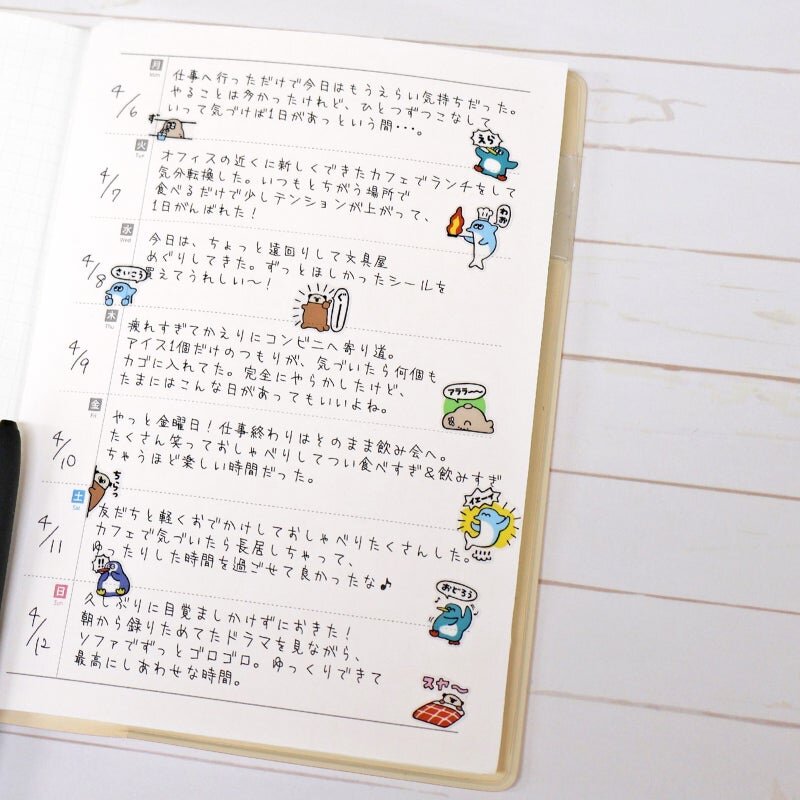 月
Mon
4/6
仕事へ行っただけで今日はもうえらい気持ちだった。
やることは多かったけれど、ひとつずつこなして
いって気づけば1日があっという間・・・。
えら
火
Tue
4/7
オフィスの近くに新しくできたカフェでランチをして
気分転換した。いつもとちがう場所で
食べるだけで少しテンションが上がって、
1日がんばれた!
わお
水
Wed
4/8
今日は、ちょっと遠回りして文具屋
めぐりしてきた。ずっとほしかったシールを
買えてうれしい〜!
さいこう
ぐー
木
Thu
4/9
疲れすぎてかえりにコンビニへ寄り道。
アイス1個だけのつもりが、気づいたら何個も
カゴに入れてた。完全にやらかしたけど、
たまにはこんな日があってもいいよね。
アララ〜〜
金
Fri
4/10
やっと金曜日!仕事終わりはそのまま飲み会へ。
たくさん笑っておしゃべりしてつい食べすぎ&飲みすぎ
ちゃうほど楽しい時間だった。
ちらっ
イエーイ
土
Sat
4/11
友だちと軽くおでかけしておしゃべりたくさんした。
カフェで気づいたら長居しちゃって、
ゆったりした時間を過ごせて良かったな♪
!!
おどろう
日
Sun
4/12
久しぶりに目覚ましかけずにおきた!
朝から録りためてたドラマを見ながら、
ソファでずっとゴロゴロ。ゆっくりできて
最高にしあわせな時間。
スヤ〜